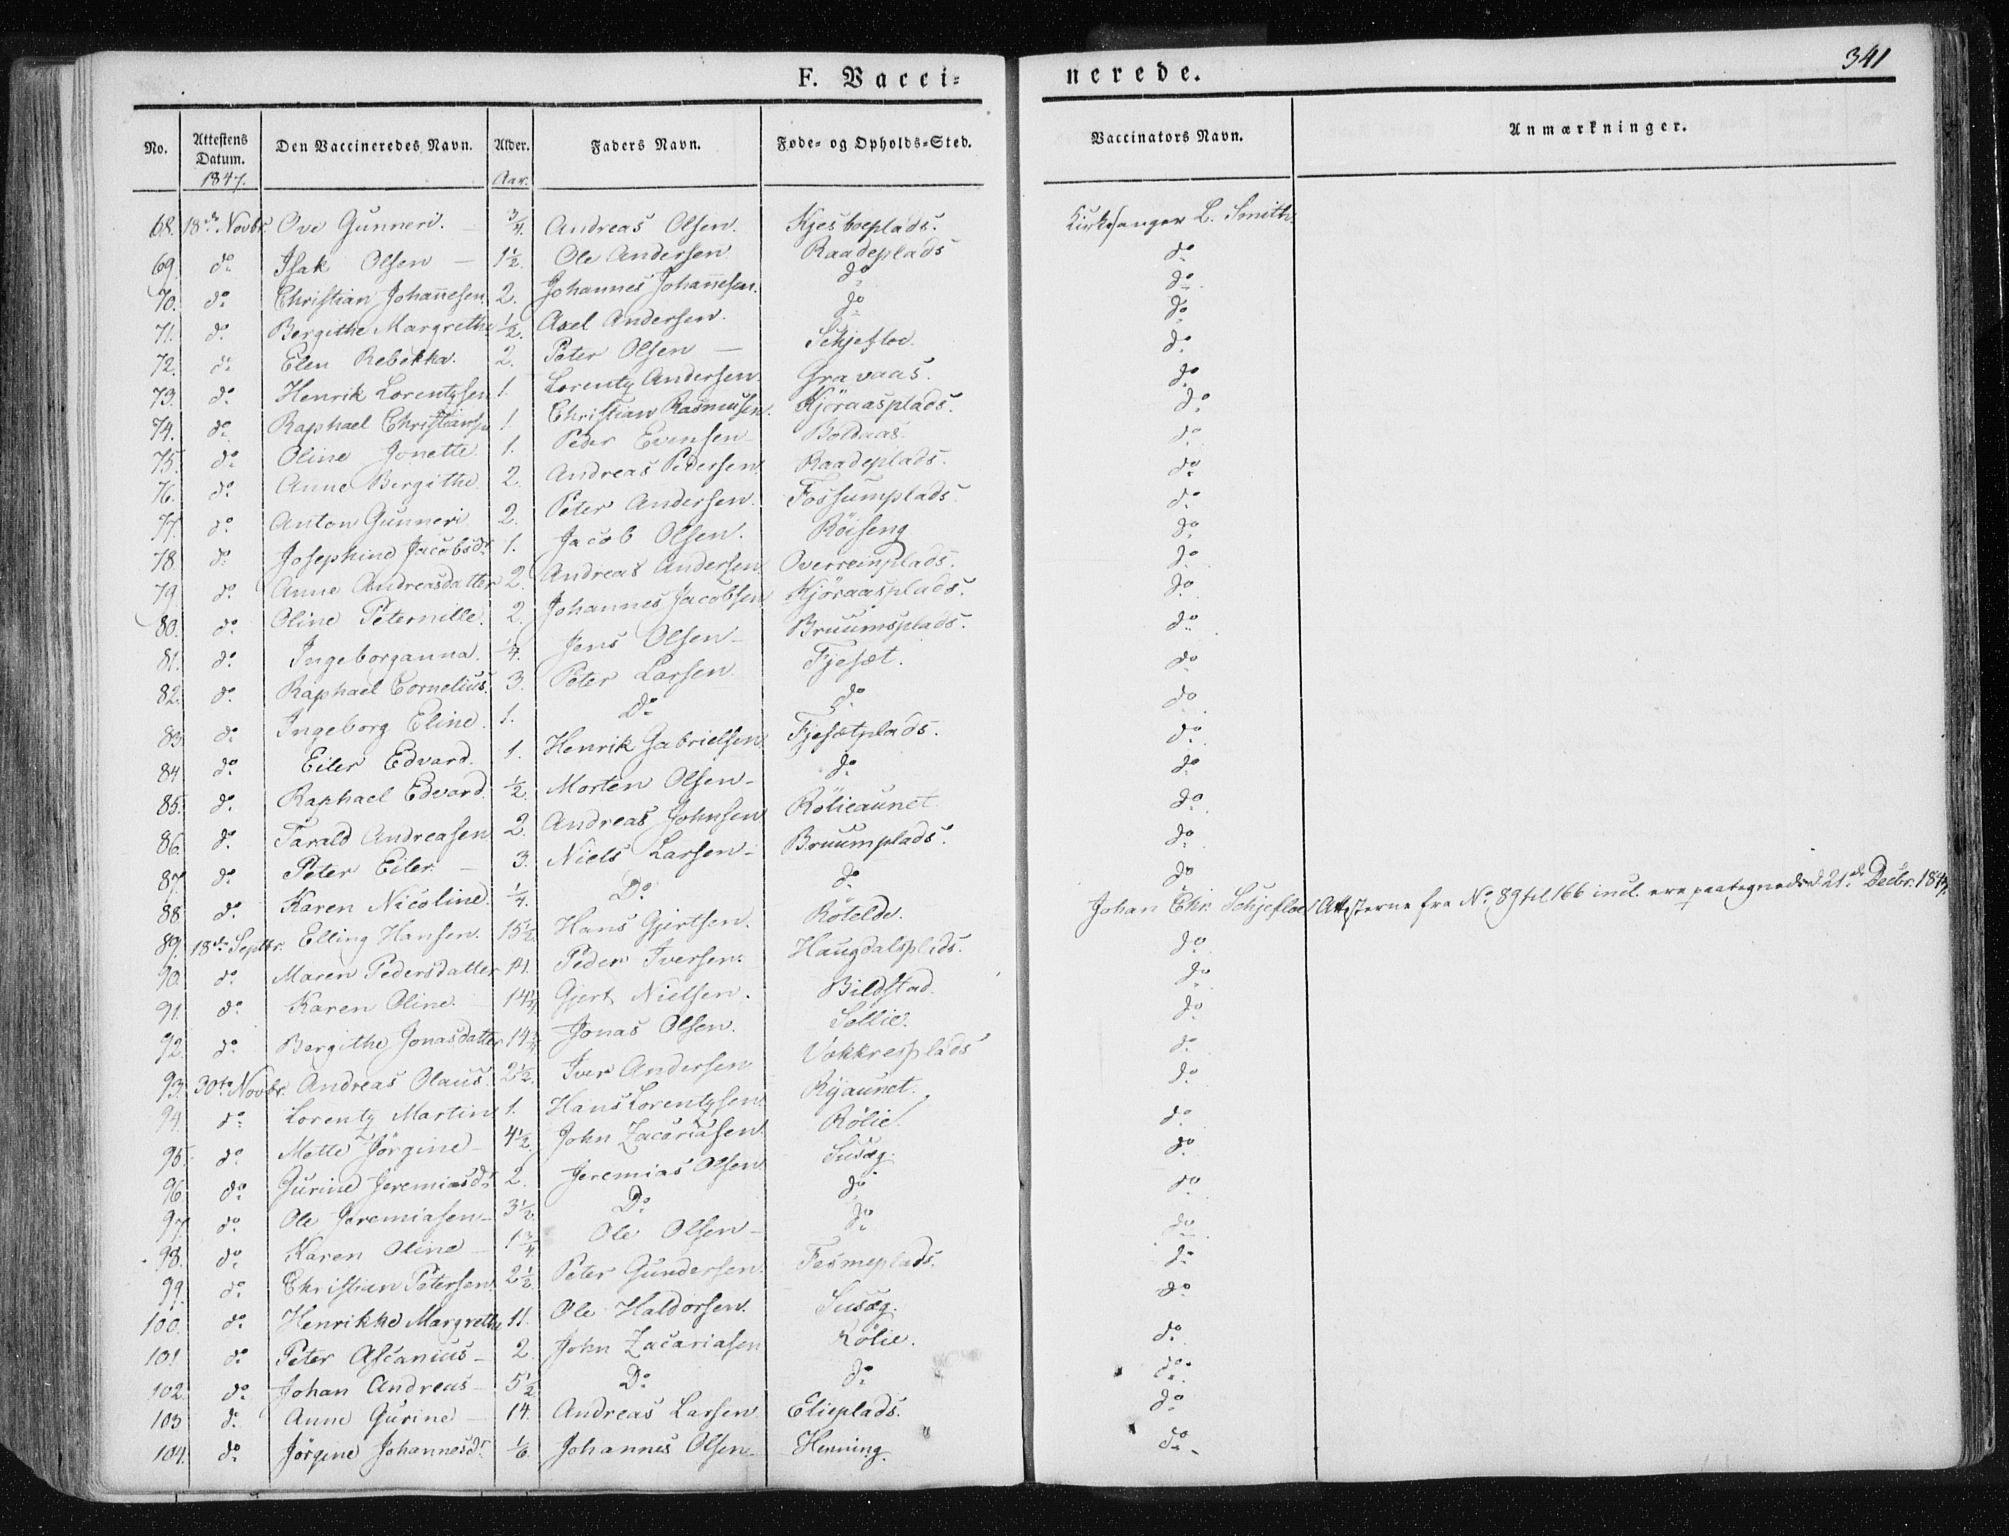 341
F. Vacci= nerede.
No. Attestens Datum. Den Vaccineredes Navn. Alder. Faders Navn. Føde- og Opholds-Sted. Vaccinators Navn. Anmærkninger.
1847. Aar.
68. 18de Novbr. Ove Gunneri. 3/4. Andreas Olsen. Kjesboeplads. Kirkesanger L. Smith.
69. do Isak Olsen 1 1/2. Ole Andersen. Raadeplads do
70. do Christian Johannesen 2. Johannes Johannesen. do do
71. do Bergithe Margrethe 1/2. Axel Andersen. do do
72. do Elen Rebekka. 2. Peter Olsen Schjefloe. do
73. do Henrik Lorentzsen 1. Lorentz Andersen. Gravaas. do
74. do Raphael Christiansen 1 Christian Rasmussen. Kjöraasplads. do
75. do Oline Jonette 1. Peder Evensen Boldaas. do
76. do Anne Bergithe 2. Andreas Pedersen. Raadeplads. do
77. do Anton Gunneri 2. Peter Andersen. Fossumplads. do
78. do Josephine Jacobsdr 1. Jacob Olsen. Röiseng do
79 do Anne Andreasdatter 2. Andreas Andersen. Overreinplads. do
80. do Oline Peternille. 2. Johannes Jacobsen Kjöraasplads. do
81. do Ingeborganna. 1/4. Jens Olsen Bruumsplads. do
82. do Raphael Cornelius. 3. Peter Larsen Fjesæt. do
83 do Ingeborg Eline. 1. Do do do
84 do Eiler Edvard. 1. Henrik Gabrielsen Fjesætplads. do
85. do Raphael Edvard 1/2. Morten Olsen do do
86. do Tarald Andreasen 2. Andreas Johnsen Rölieaunet do
87. do Peter Eiler. 3. Niels Larsen Bruumplads. do
88. do Karen Nicoline. 1/4. Do do do
89. 18de Septbr. Elling Hansen. 15 1/2. Hans Gjertsen. Rötelde. Johan Chr. Schjefloe Attesterne fra No 89 til 166 incl. ere paategnede d. 21de Decbr. 1847.
90. do Maren Pedersdatter 14. Peder Iversen. Haugdalsplads. do
91. do Karen Oline. 14 1/4. Gjert Nielsen. Bildstad do
92. do Bergithe Jonasdatter 14 3/4. Jonas Olsen. Sellie. do
93. 30te Novbr. Andreas Olaus. 2 1/2. Iver Andersen Vokkresplads do
94. do Lorentz Martin 1. Hans Lorentzsen. Ryaunet. do
95. do Mette Jörgine 4 1/2. John Zacariasen. Rölie. do
96. do Gurine Jeremiasdr 2. Jeremias Olsen Susæg. do
97. do Ole Jeremiasen 3 1/2. Do do do
98. do Karen Oline 1 3/4 Ole Olsen do do
99. do Christian Petersen. 2 1/2. Peter Gundersen. Fesmeplads. do
100. do Henrikke Margrethe 11. Ole Haldorsen. Susæg. do
101 do Peter Ascanius 2. John Zacariasen Rölie. do
102. do Johan Andreas 5 1/2. Do do do
103 do Anne Gurine 14. Andreas Larsen Elieplads. do
104. do Jörgine Johannesdr. 1/6. Johannes Olsen Henning. do